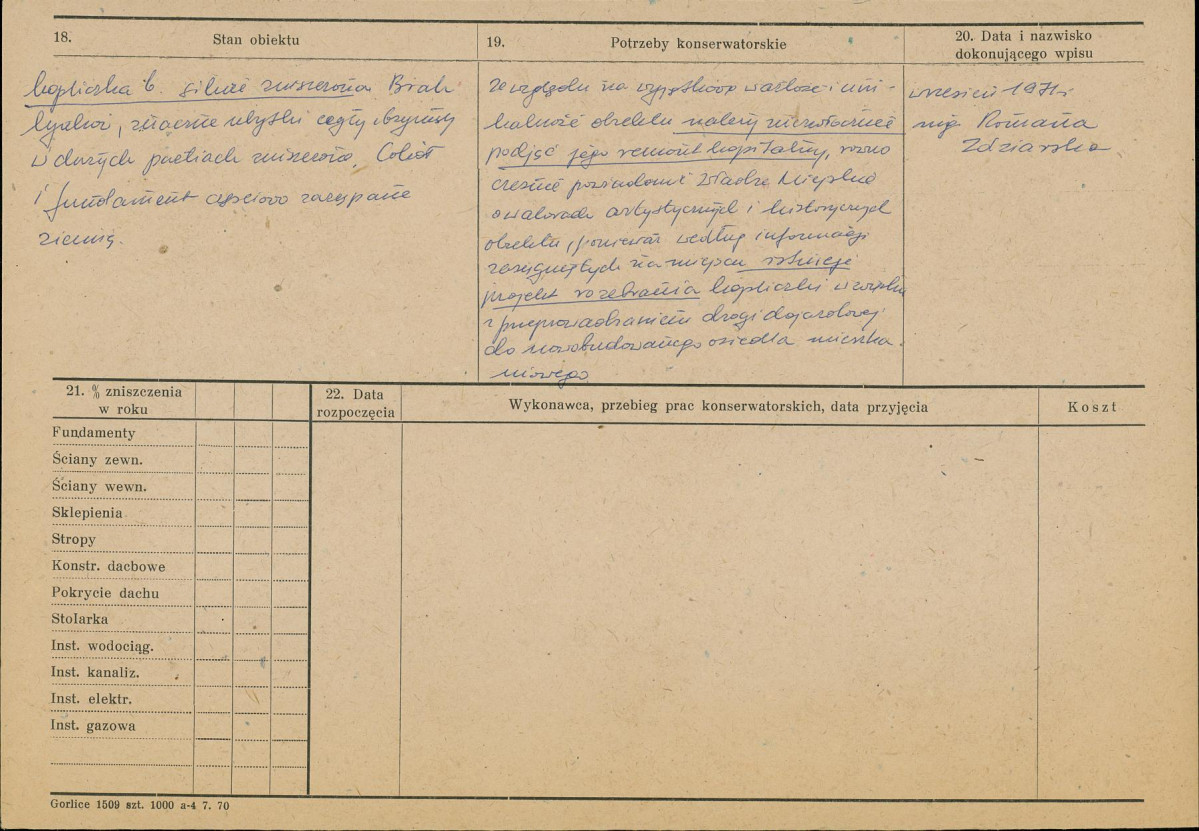 18.
Stan obiektu
19.
Potrzeby konserwatorskie
20. Data i nazwisko
dokonującego wpisu
kapliczka b. silnie zniszczona. Brak
, znaczne ubytki cegły,
w dużych partiach zniszcz. Cokół
i fundament częściowo zasypane
ziemią.
ze względu na wyjątkową wartość i uni-
kalność obiektu należy niezwłocznie
podjąć jego remont kapitalny, równo
cześnie powiadomić Władze Miejskie
o walorach artystycznych i historycznych
obiektu, ponieważ według informacji
zasięgniętych na miejscu istnieje
projekt rozebrania kapliczki w związku
z przeprowadzaniem drogi dojazdowej
do nowobudowanego osiedla mieszka-
niowego
wrzesień 1971 r
mgr Romana
Zdziarska
21. % zniszczenia
w roku
22. Data
rozpoczęcia
Wykonawca, przebieg prac konserwatorskich, data przyjęcia
Koszt
Fundamenty
Ściany zewn.
Ściany wewn.
Sklepienia
Stropy
Konstr. dachowe
Pokrycie dachu
Stolarka
Inst. wodociąg.
Inst. kanaliz.
Inst. elektr.
Inst. gazowa
Gorlice 1509 szt. 1000 a-4 7. 70